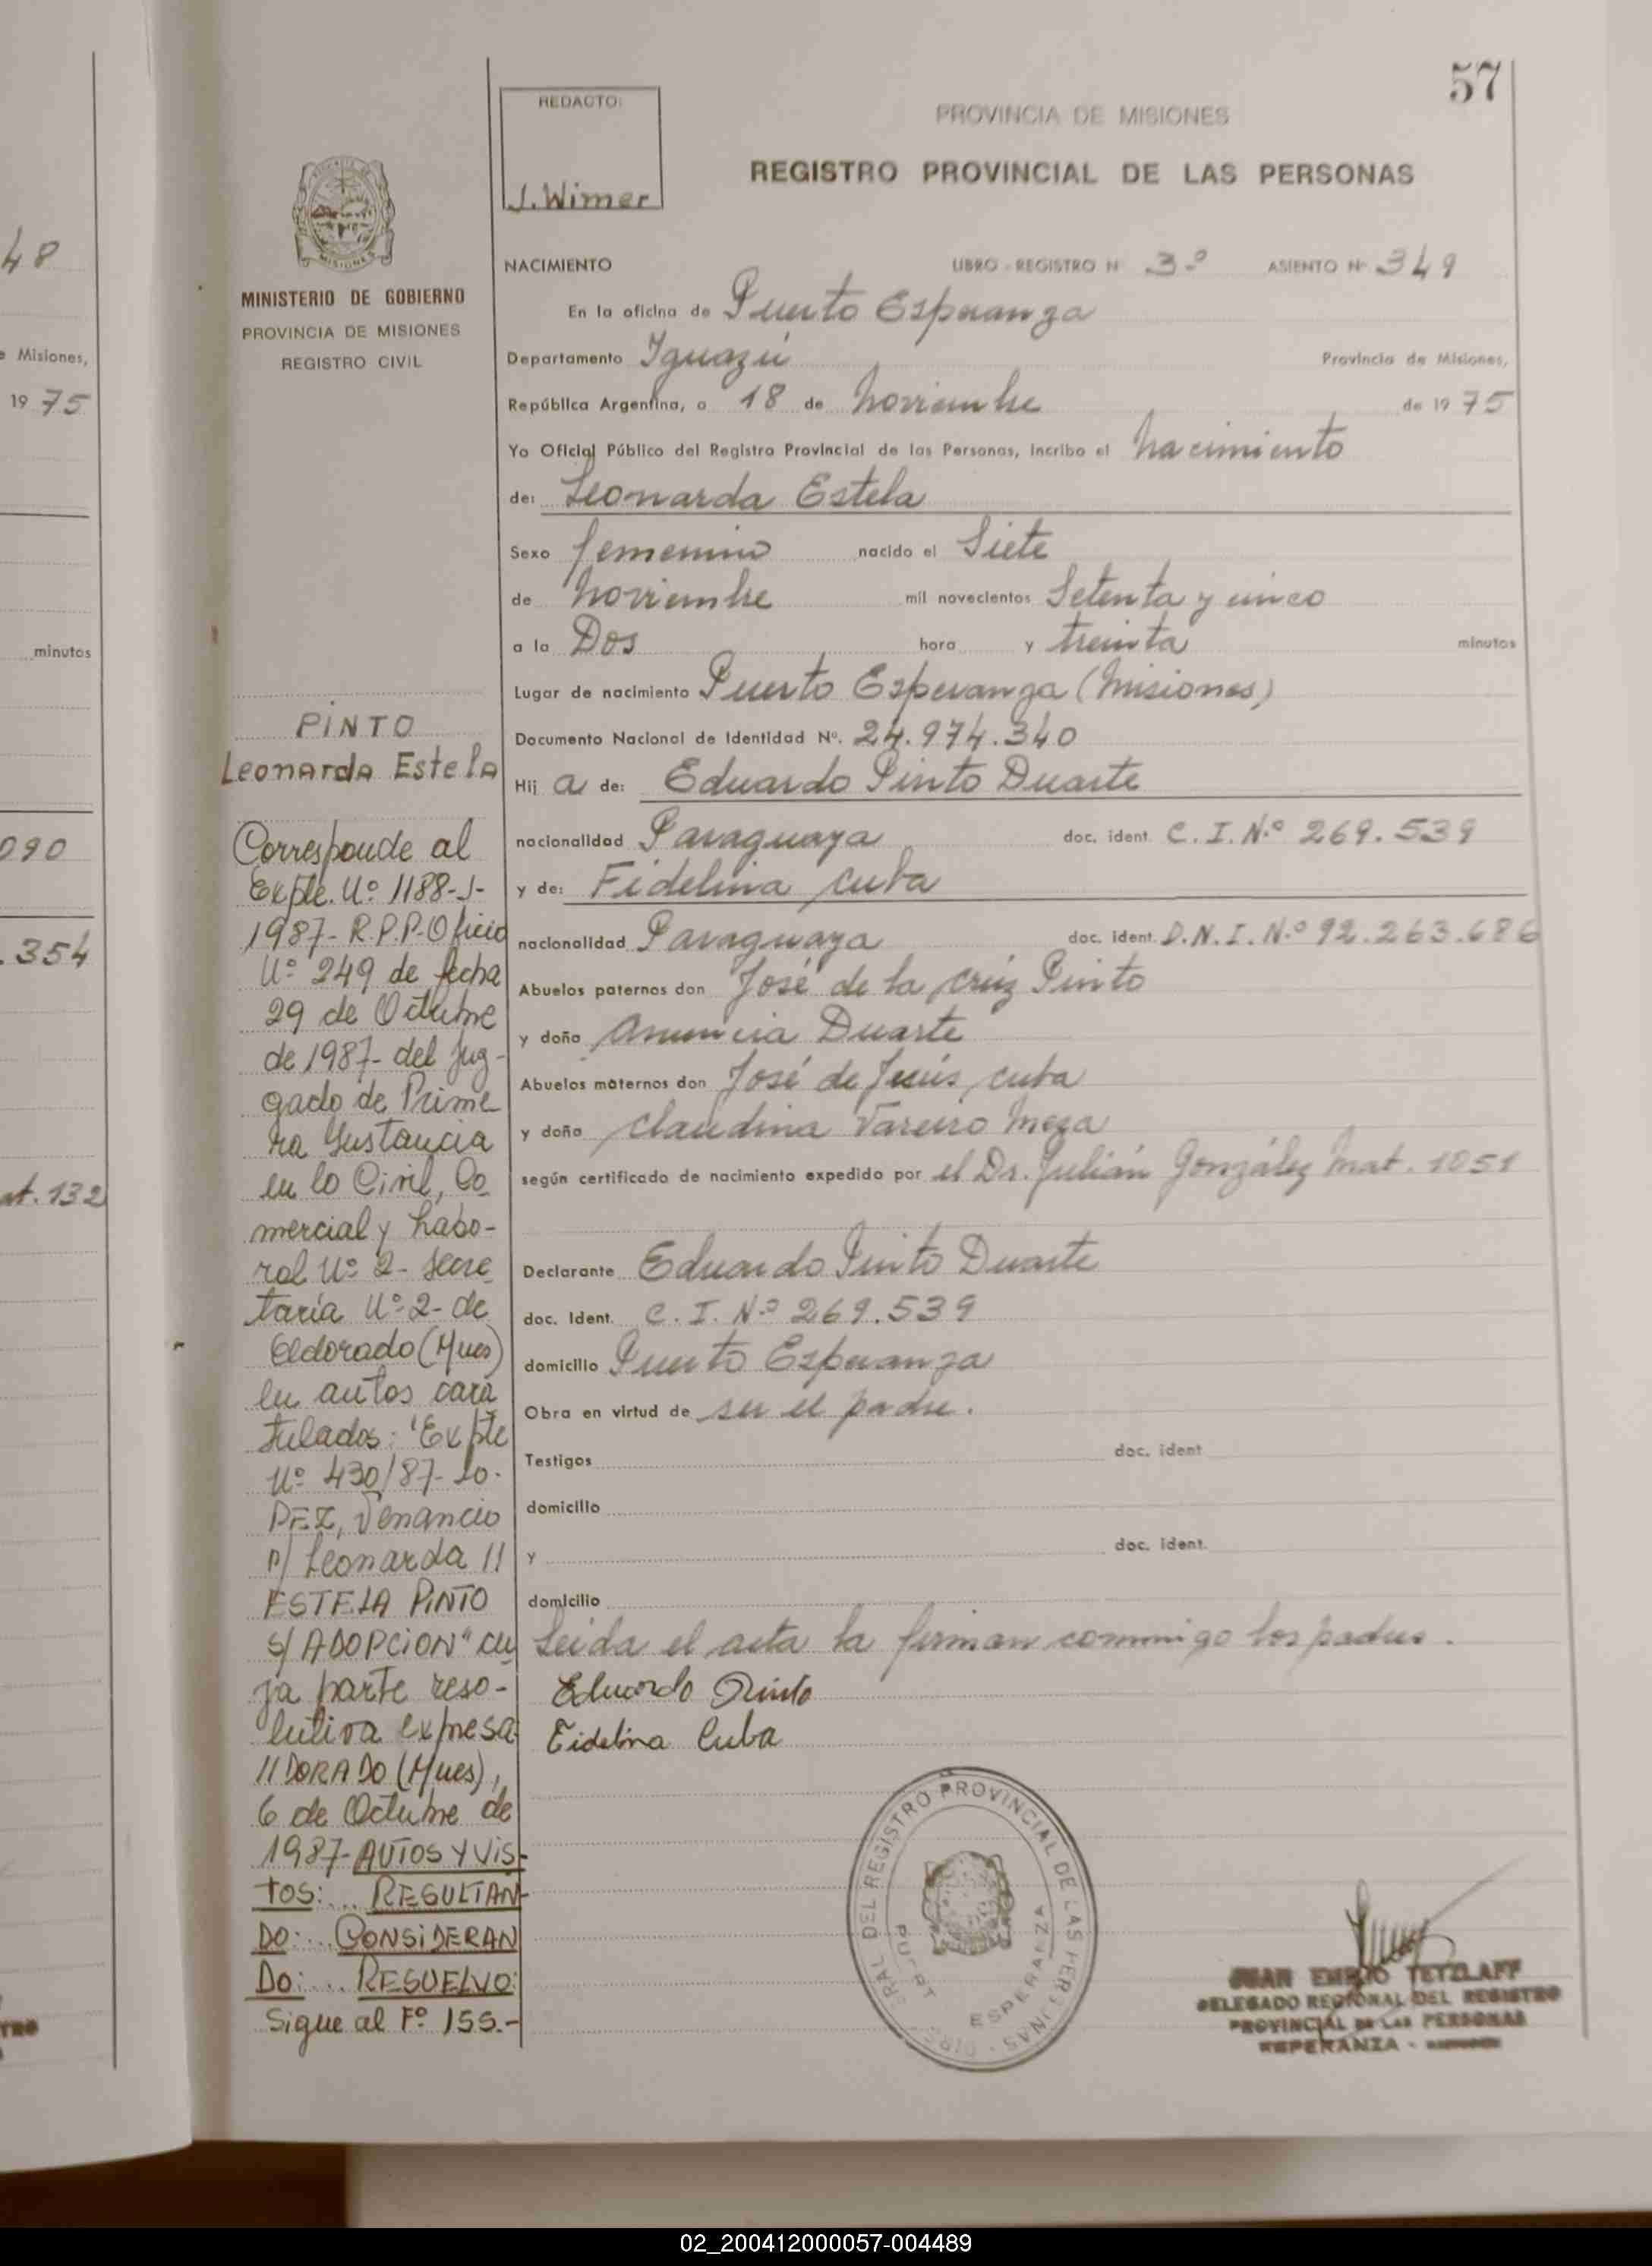 48
e Misiones,
19 75
minutos
090
.354
at. 132
TRO
57
REDACTO:
J. Wimer
PROVINCIA DE MISIONES
REGISTRO PROVINCIAL DE LAS PERSONAS
MISIONES
MINISTERIO DE GOBIERNO
PROVINCIA DE MISIONES
REGISTRO CIVIL
NACIMIENTO LIBRO - REGISTRO N 3º ASIENTO Nº 349
En la oficina de Puerto Esperanza
Departamento Iguazú Provincia de Misiones,
República Argentina, a 18 de Noviembre de 19 75
Yo Oficial Público del Registro Provincial de las Personas, incribo el Nacimiento
de: Leonarda Estela
Sexo femenino nacido el Siete
de Noviembre mil novecientos Setenta y cinco
a la Dos hora y treinta minutos
Lugar de nacimiento Puerto Esperanza (Misiones)
Documento Nacional de Identidad Nº. 24.974.340
Hij a de: Eduardo Pinto Duarte
nacionalidad Paraguaya doc. ident. C. I. N.º 269.539
y de: Fidelina Cuba
nacionalidad Paraguaya doc. ident. D.N.I. N.º 92.263.686
Abuelos paternos don José de la Cruz Pinto
y doña Anuncia Duarte
Abuelos maternos don José de Jesús Cuba
y doña Claudina Vareiro Meza
según certificado de nacimiento expedido por el Dr. Julián González Mat. 1051
Declarante Eduardo Pinto Duarte
doc. Ident. C. I. N.º 269.539
domicilio Puerto Esperanza
Obra en virtud de ser el padre.
Testigos doc. ident
domicilio
y doc. ident.
domicilio
Leida el acta la firman conmigo los padres.
Eduardo Pinto
Fidelina Cuba
PINTO
Leonarda Estela
Corresponde al
Expte. Nº 1188-J-
1987- R.P.P. Oficio
Nº 249 de fecha
29 de Octubre
de 1987- del Juz-
gado de Prime
ra Instancia
en lo Civil, Co
mercial y Labo-
ral Nº 2- Secre
taría Nº 2- de
Eldorado (Mnes)
en autos cara
tulados: "Expte
Nº 430/87- LO-
PEZ, Venancio
p/ Leonarda //
ESTELA PINTO
s/ ADOPCION" cu
ya parte reso-
lutiva expresa:
//DORADO (Mnes),
6 de Octubre de
1987- AUTOS Y VIS-
TOS: ... RESULTAN-
DO: ... CONSIDERAN
DO: ... RESUELVO:
Sigue al Fº 155.-
REGISTRO PROVINCIAL DE LAS PERSONAS
ESPERANZA
JUAN EMILIO TETZLAFF
DELEGADO REGIONAL DEL REGISTRO
PROVINCIAL DE LAS PERSONAS
ESPERANZA -
02_200412000057-004489